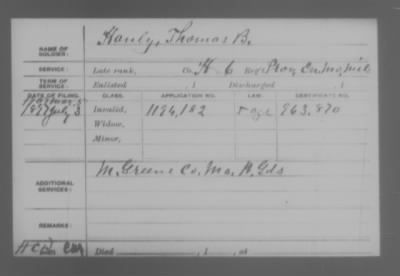 NAME OF SOLDIER: Hanly, Thomas B.
SERVICE: Late rank, Co. H. 6 Reg't Prov. En. Mo. Mil.
TERM OF SERVICE: Enlisted , 1 Discharged , 1
DATE OF FILING. CLASS. APPLICATION NO. LAW. CERTIFICATE NO.
1897 July 3 Invalid, 1194,182 963,870
Widow,
Minor,
ADDITIONAL SERVICES: M. Greene Co. Mo. H. Gds
REMARKS:
Died , 1 , at